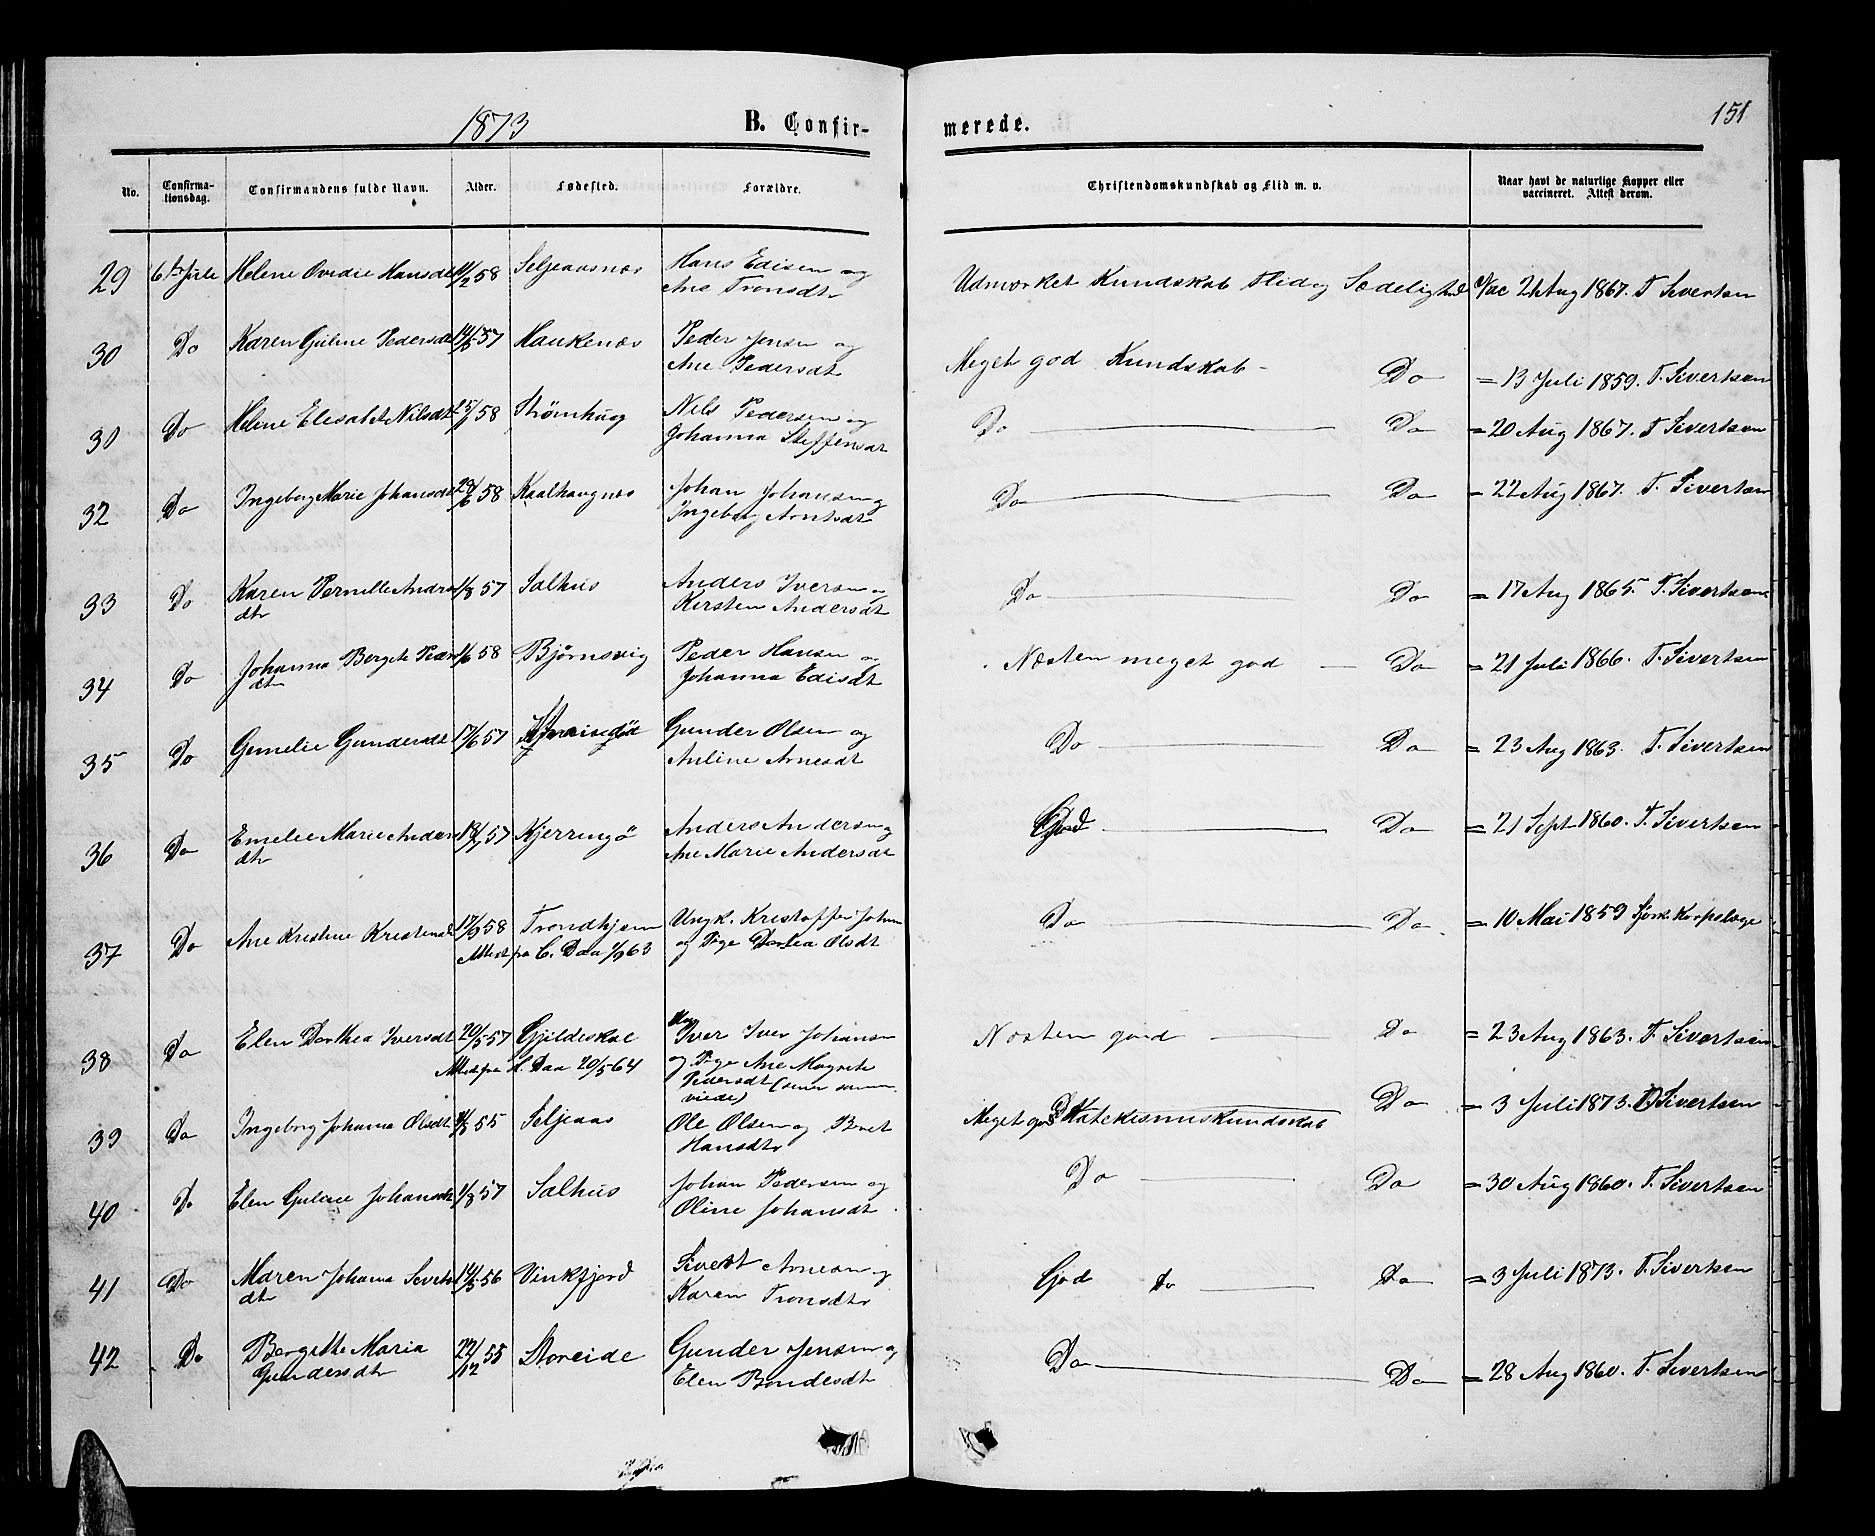 1873 B. Confirmerede. 151
No. Confirmationsdag. Confirmandens fulde Navn. Alder. Fødested. Forældre. Christendomskundskab og Flid m. v. Naar havt de naturlige Kopper eller vaccineret. Attest derom.
29 6te Juli Helene Ovedie Hansdt 58 Seljeaasnæs Hans Edisen og Udmærket Kundskab Flid og Sædelighed Vac 21 Aug 1867. T. Sivertsen
Ane Tronsdtr
30 Do Karen Guline Pedersdt 14/5 57 Haukenæs Peder Jensen og Meget god Kundskab - Do = 13 Juli 1859. T. Sivertsen
Ane Pedersdt
30 Do Helene Elisabet Nilsdt 58 Strømhug Nils Pedersen og Do Do = 20 Aug 1867. T Sivertsen
Johanna Steffensdt
32 Do Ingeborg Marie Johansdt 58 Kaalhaugnæs Johan Johansen og Do Do = 22 Aug 1867. T. Sivertsen
Ingeborg Arntsdt
33 Do Karen Pernille Anders 1/8 57 Salhus Anders Iversen og Do Do = 17 Aug 1865. T. Sivertsen
dtr Kirsten Andersdt
34 Do Johanna Bergite Peders 1/6 58 Bjørnsvig Peder Hansen og Næsten meget god Do = 21 Juli 1866. T. Sivertsen
dtr Johanna Edisdt
35 Do Gemelie Gundersdt 17/6 57 Gunder Olsen og Do Do = 23 Aug 1863. T. Sivertsen
Anline Arnesdt
36 Do Emelie Marie Anders 57 Kjerringø Anders Andersen og God Do = 21 Sept 1860. T. Sivertsen
dtr Ane Marie Andersdt
37 Do Ane Kristine Kristensdt 17/9 58 Trondhjem Ungk. Kristoffer Johan Do Do = 10 Mai 1859
Attest fra C. Daa 1/9 63 og Pige Dortea Olsdt
38 Do Elen Dorthea Iversdt 20/5 57 Gjildeskal Iver Iver Johansen Næsten god Do = 23 Aug 1863. T. Sivertsen
Attest fra C. Daa 20/5 64 og Pige Ane Magrete
Pedersdt (sener sammen-
viede)
39 Do Ingeborg Johanna Olsdt 55 Seljeaas Ole Olsen og Beret Meget god Katekismuskundskab Do = 3 Juli 1873. T. Sivertsen
Hansdtr
40 Do Elen Guline Johansdt 1/8 57 Salhus Johan Pedersen og Do Do = 30 Aug 1860. T. Sivertsen
Oline Johansdt
41 Do Maren Johanna Siverts 56 Vinkfjord Sivert Arnesen og God Do Do = 3 Juli 1873. T. Sivertsen
dtr Karen Tronsdtr
42 Do Bergitte Maria 22/12 55 Storeide Gunder Jensen og Do Do = 28 Aug 1860. T. Sivertsen
Gundersdt Elen Bendesdt